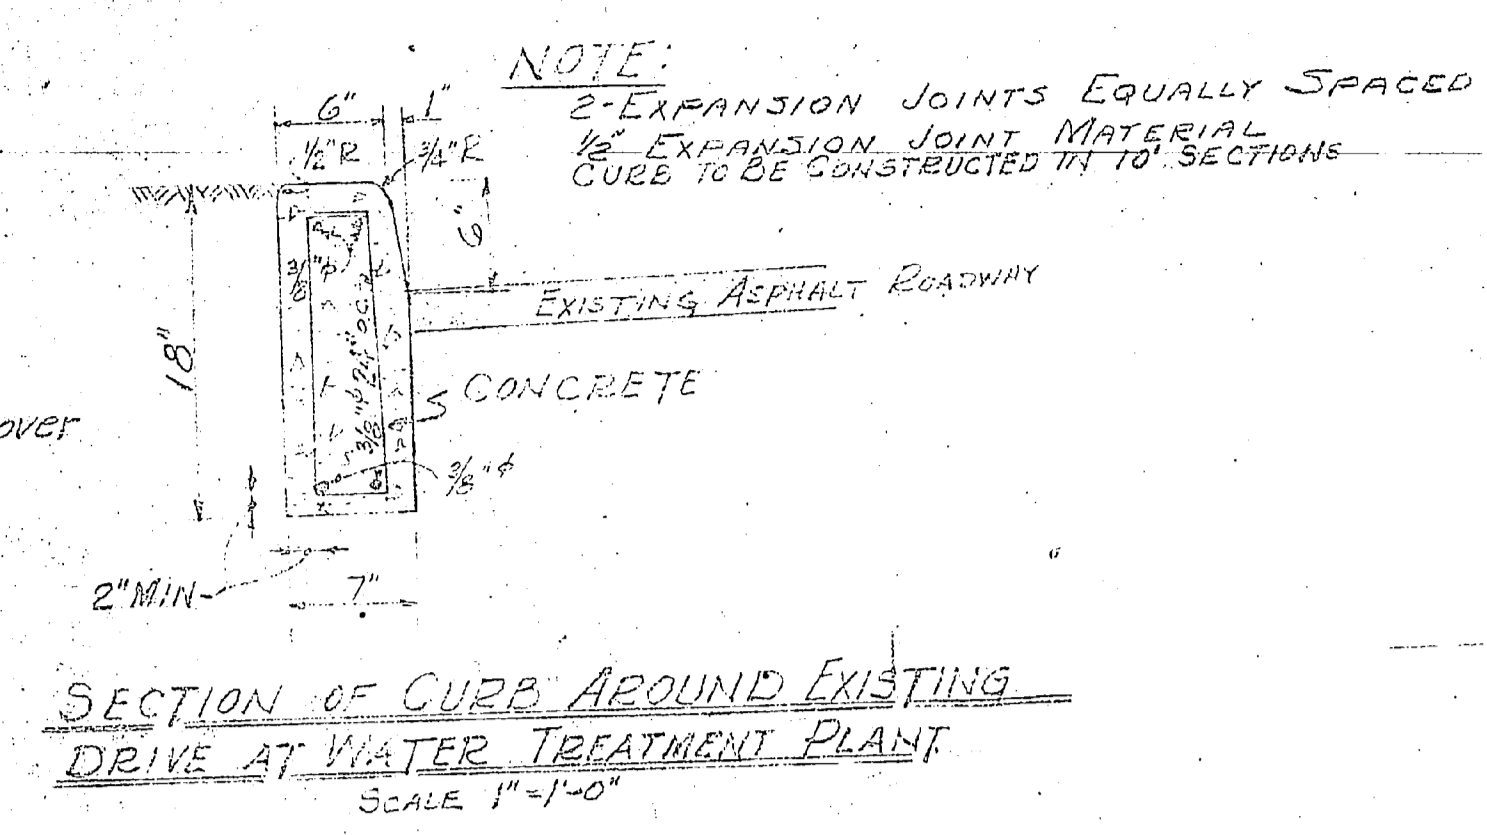 NOTE:
2-EXPANSION JOINTS EQUALLY SPACED
1/2" EXPANSION JOINT MATERIAL
CURB TO BE CONSTRUCTED IN 10' SECTIONS
6"
1"
1/2"R
3/4"R
6"
3/8"φ
EXISTING ASPHALT ROADWAY
18"
3/8"φ 24" O.C.
CONCRETE
over
3/8"φ
2"MIN
7"
SECTION OF CURB AROUND EXISTING
DRIVE AT WATER TREATMENT PLANT
SCALE 1"=1'-0"